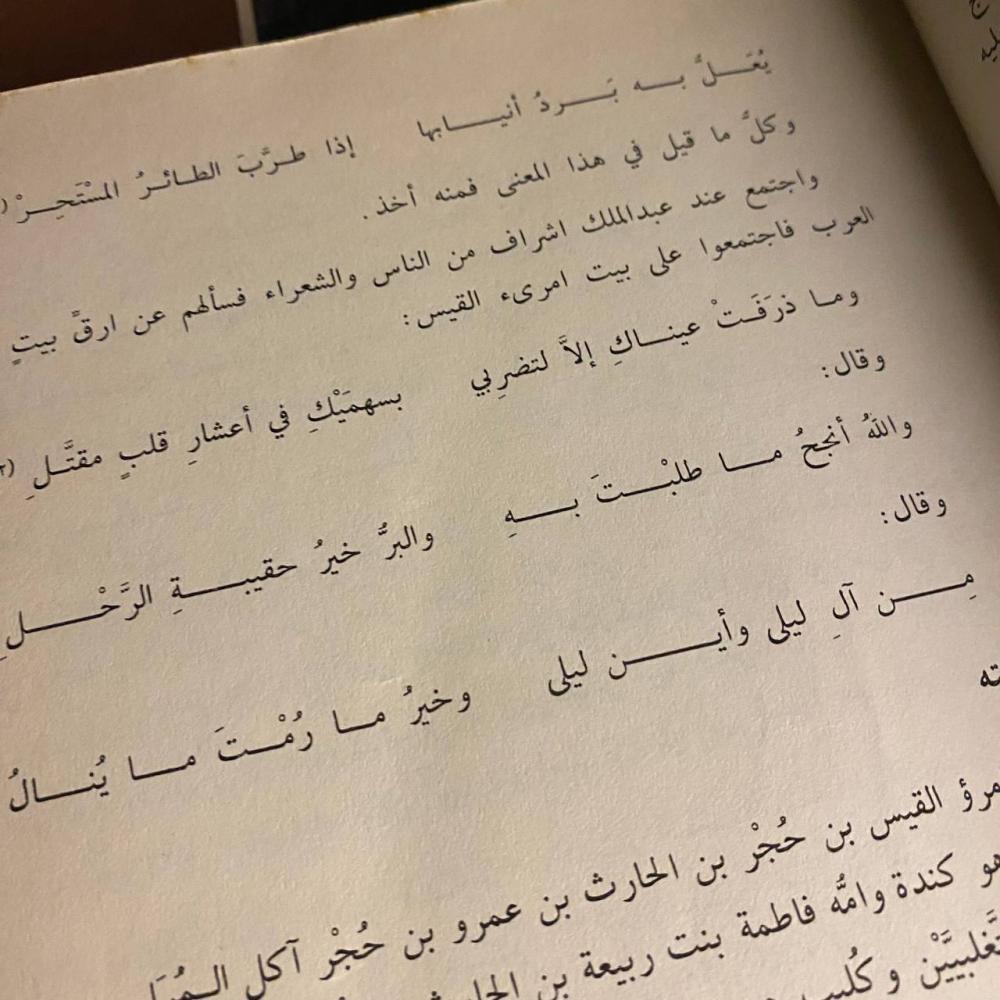 يُعَـــلُّ بـــه بَـــردُ أنيـــابها إذا طـرَّبَ الطـائـرُ المسْتَحِـــرْ (
وكلُّ ما قيل في هذا المعنى فمنه أخذ .
واجتمع عند عبدالملك اشراف من الناس والشعراء فسألهم عن ارقِّ بيتٍ
العرب فاجتمعوا على بيت امرىء القيس:
ومـا ذرَفَـتْ عينـــاكِ إلاَّ لتضرِبي بسهمَيْكِ في أعشارِ قلبٍ مقتَّـلِ (٢
وقال:
واللهُ أنجحُ مـــا طلبْـــتَ بـــهِ والبرُّ خيرُ حقيبـــةِ الرَّحْـــلِ
وقال:
مِـــن آلِ ليلى وأيـــن ليلى وخيرُ مـــا رُمْـــتَ مـــا يُنـــالُ
ته
مرؤ القيس بن حُجْر بن الحارث بن عمرو بن حُجْر آكل
هو كندة وامُّه فاطمة بنت ربيعة بن
تَّغلبيَّيْن وكُليب